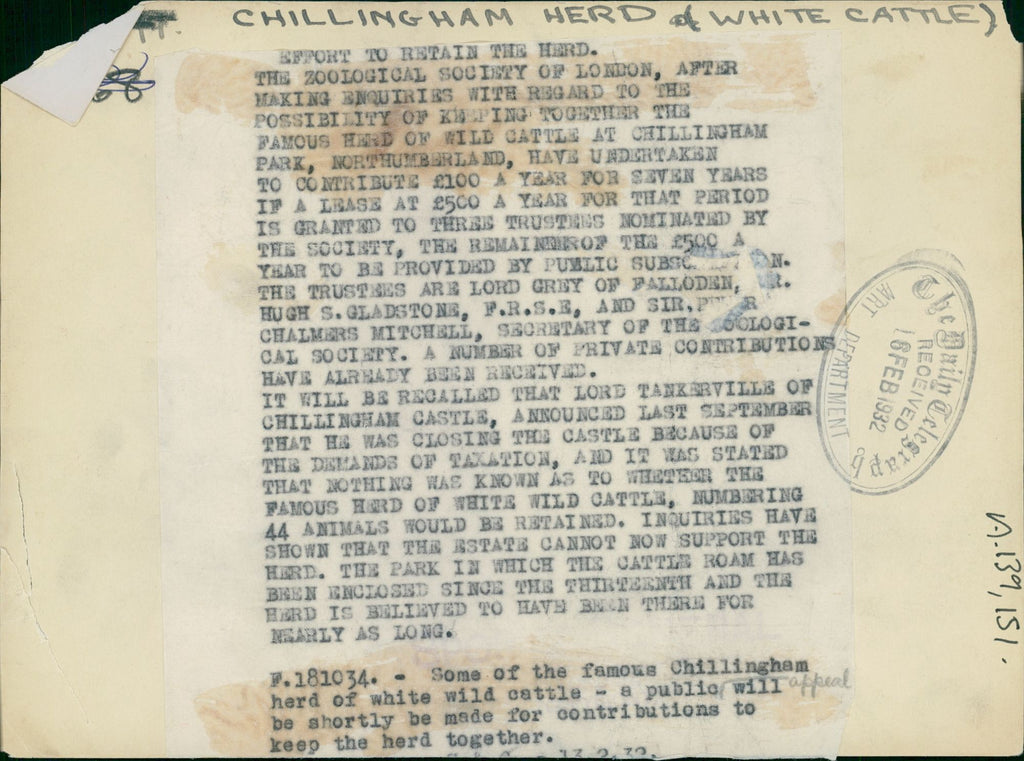 CHILLINGHAM HERD of WHITE CATTLE)
EFFORT TO RETAIN THE HERD.
THE ZOOLOGICAL SOCIETY OF LONDON, AFTER
MAKING ENQUIRIES WITH REGARD TO THE
POSSIBILITY OF KEEPING TOGETHER THE
FAMOUS HERD OF WILD CATTLE AT CHILLINGHAM
PARK, NORTHUMBERLAND, HAVE UNDERTAKEN
TO CONTRIBUTE £100 A YEAR FOR SEVEN YEARS
IF A LEASE AT £500 A YEAR FOR THAT PERIOD
IS GRANTED TO THREE TRUSTEES NOMINATED BY
THE SOCIETY, THE REMAINEROF THE £500 A
YEAR TO BE PROVIDED BY PUBLIC
THE TRUSTEES ARE LORD GREY OF FALLODEN,
HUGH S.GLADSTONE, F.R.S.E, AND SIR.
CHALMERS MITCHELL, SECRETARY OF THE ZOOLOGI-
CAL SOCIETY. A NUMBER OF PRIVATE CONTRIBUTIONS
HAVE ALREADY BEEN RECEIVED.
IT WILL BE RECALLED THAT LORD TANKERVILLE OF
CHILLINGHAM CASTLE, ANNOUNCED LAST SEPTEMBER
THAT HE WAS CLOSING THE CASTLE BECAUSE OF
THE DEMANDS OF TAXATION, AND IT WAS STATED
THAT NOTHING WAS KNOWN AS TO WHETHER THE
FAMOUS HERD OF WHITE WILD CATTLE, NUMBERING
44 ANIMALS WOULD BE RETAINED. INQUIRIES HAVE
SHOWN THAT THE ESTATE CANNOT NOW SUPPORT THE
HERD. THE PARK IN WHICH THE CATTLE ROAM HAS
BEEN ENCLOSED SINCE THE THIRTEENTH AND THE
HERD IS BELIEVED TO HAVE BEEN THERE FOR
NEARLY AS LONG.
F.181034. - Some of the famous Chillingham
herd of white wild cattle - a public appeal will
be shortly be made for contributions to
keep the herd together.
13.2.32.
The Daily Telegraph
RECEIVED
18 FEB 1932
ART DEPARTMENT
A.139,151.